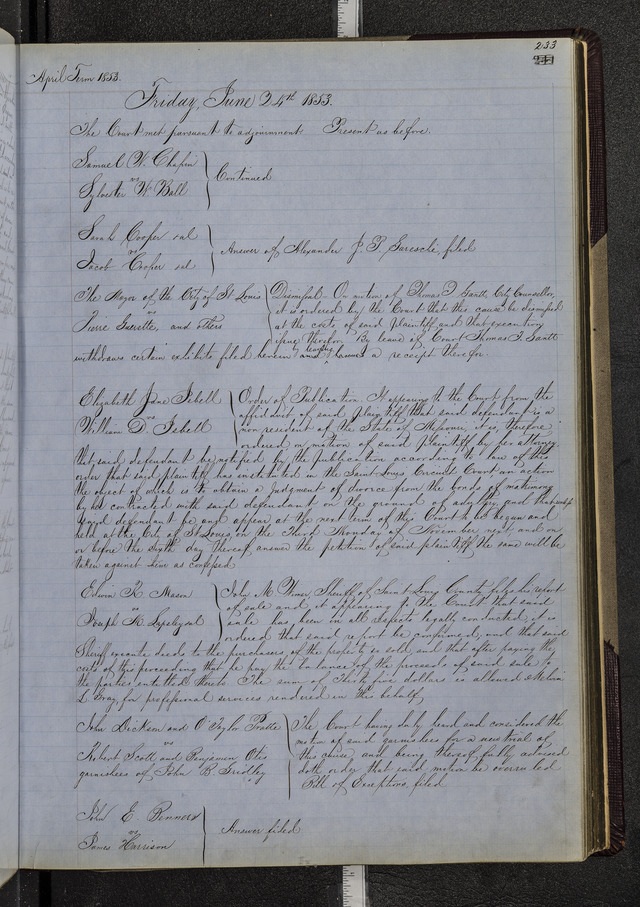 233
April Term 1853.
Friday, June 24th 1853.
The Court met pursuant to adjournment Present as before.
Samuel W. Chapin
vs
Sylvester W Ball
Continued
Sarah Cooper et al
vs
Jacob Cooper et al
Answer of Alexander J. P. filed
The Mayor of the City of St Louis
vs
Pierre and others
Dismissed. On motion of Thomas T. Gantt, City Counsellor,
it is ordered by the Court that this cause be dismissed
at the costs of said plaintiff and that execution
issue therefor. By leave of Court Thomas T. Gantt
withdraws certain exhibits filed herein and a receipt therefor.
Elizabeth Jane Isbell
vs
William D. Isbell
Order of Publication. It appearing to the Court from the
affidavit of said plaintiff that said defendant is a
non resident of the State of Missouri, it is, therefore
ordered on motion of said plaintiff by her attorney
that said defendant be notified by the publication according to law of this
order that said plaintiff has instituted in the Saint Louis Circuit Court an action
the object of which is to obtain a judgment of divorce from the bonds of matrimony
by her contracted with said defendant, on the ground of and that unless
said defendant be and appear at the next term of this Court to be begun and
held at the City of St Louis, on the Third Monday of November next and on
or before the sixth day thereof, answer the petition of said plaintiff the same will be
taken against him as confessed
Edwin R. Mason
vs
Joseph H. et al
John M. Wimer, Sheriff of Saint Louis County files his report
of sale and it appearing to the Court that said
sale has been in all respects legally conducted, it is
ordered that said report be confirmed, and that said
Sheriff execute deeds to the purchasers of the property so sold, and that after paying the
costs of this proceeding that he pay the balance of the proceeds of said sale to
the parties entitled thereto The sum of Thirty five dollars is allowed Melvin
L. Gray for professional services rendered in this behalf,
John Dickson and O Taylor
vs
Robert Scott and Benjamin Otis
garnishees of John B. Gridley
The Court having duly heard and considered the
motion of said garnishees for a new trial of
this cause, and being thereof fully advised
doth order that said motion be overruled
Bill of Exceptions, filed
John E. Penners
vs
James Harrison
Answer filed